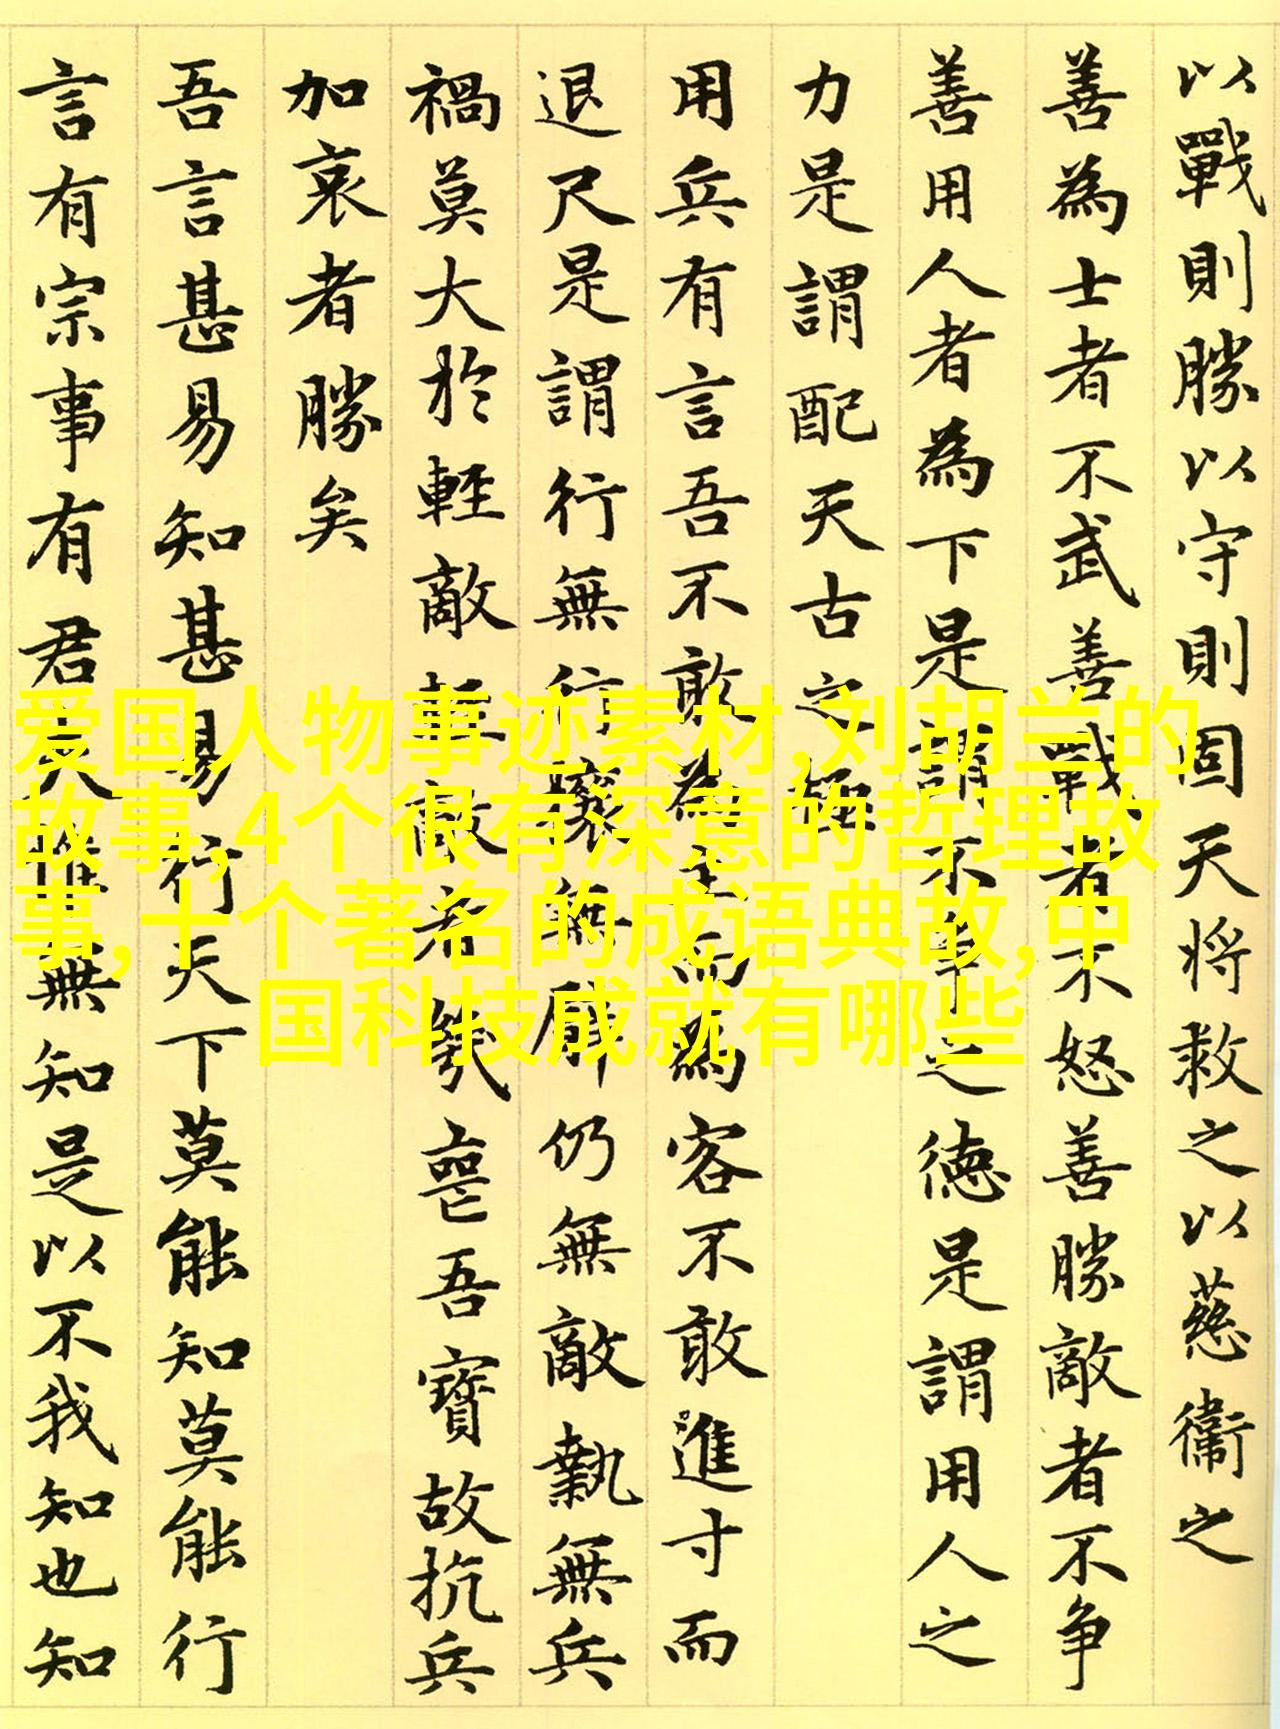 以戰則勝以守則固天將救之以慈衛之
善為士者不武善戰者不怒善勝敵者不争
善用人者為下是謂不争之德是謂用人之
力是謂配天古之極
用兵有言吾不敢為主而為客不敢進寸而
退尺是謂行無行攘無臂仍無敵執無兵
禍莫大於輕敵輕敵者幾喪吾寶故抗兵
加哀者勝矣
吾言甚易知甚易行天下莫能知莫能行
言有宗事有君夫惟無知是以不我知也知
爱国人物事迹素材,刘胡兰的
故事,4个很有深意的哲理故
事,十个著名的成语典故,中
国科技成就有哪些